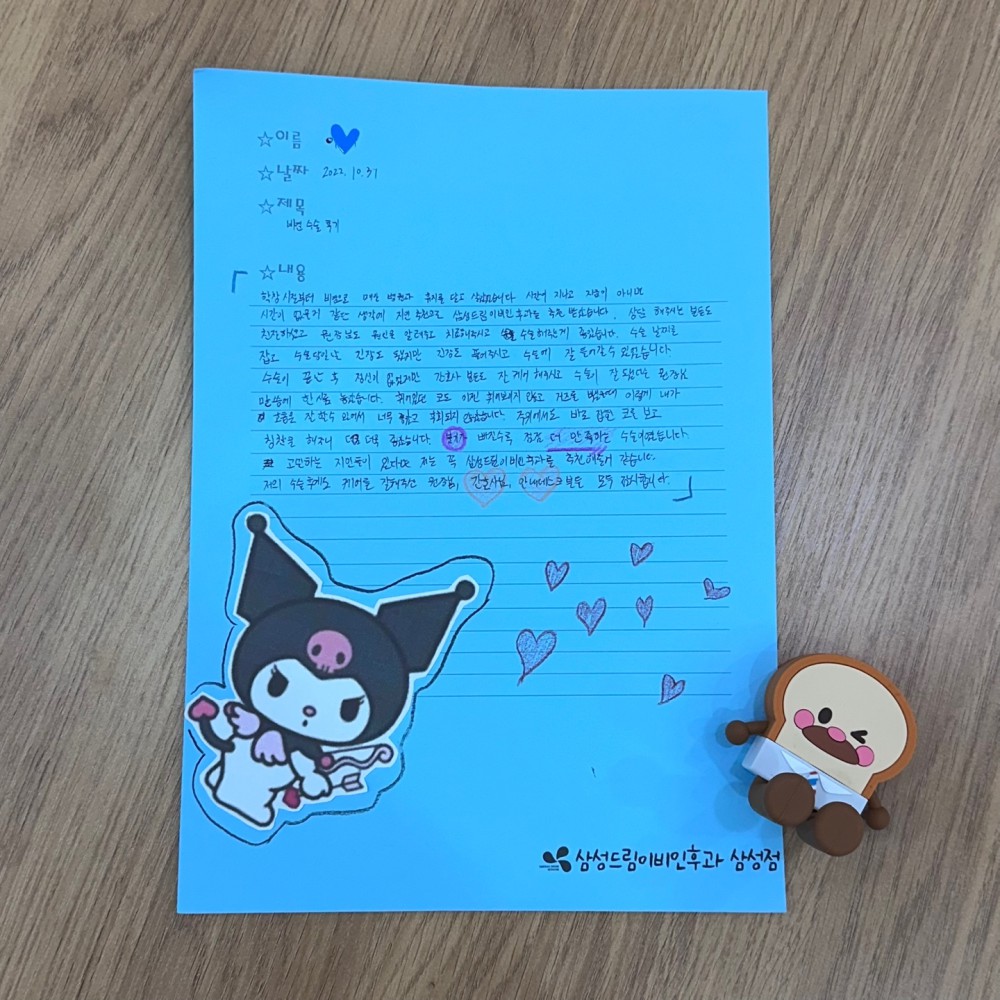 ☆이름
☆날짜 2022. 10. 31
☆제목
비염 수술 후기
☆내용
학창시절부터 비염으로 매일 병원과 휴지를 달고 살았었습니다. 시간이 지나고 지금이 아니면
시간이 없을거 같은 생각에 지인 추천으로 삼성드림이비인후과를 추천 받았습니다. 상담 해주시는 분들도
친절하셨고 원장님도 원인을 알려주고 치료해주시고 수술해주신게 좋았습니다. 수술 날짜를
잡고 수술당일날 긴장도 됐지만 긴장도 풀어주시고 수술에 잘 들어갈수 있었습니다.
수술이 끝난 후 정신이 없었지만 간호사 분들도 잘 케어 해주시고 수술이 잘 됐다는 원장님
말씀에 한시름 놓았습니다. 휘어있던 코도 이젠 휘어보이지 않고 거즈를 뺐을때 이렇게 내가
호흡을 잘 할수 있어서 너무 후회되지 않았습니다. 주위에서도 바로 잡힌 코를 보고
칭찬을 해주니 더욱 좋았습니다. 붓기가 빠질수록 점점 더 만족하는 수술이였습니다.
고민하는 지인들이 있다면 저는 꼭 삼성드림이비인후과를 추천해줄거 같습니다.
저의 수술후에도 케어를 잘해주신 원장님, 간호사님, 안내데스크분들 모두 감사합니다.
삼성드림이비인후과 삼성점